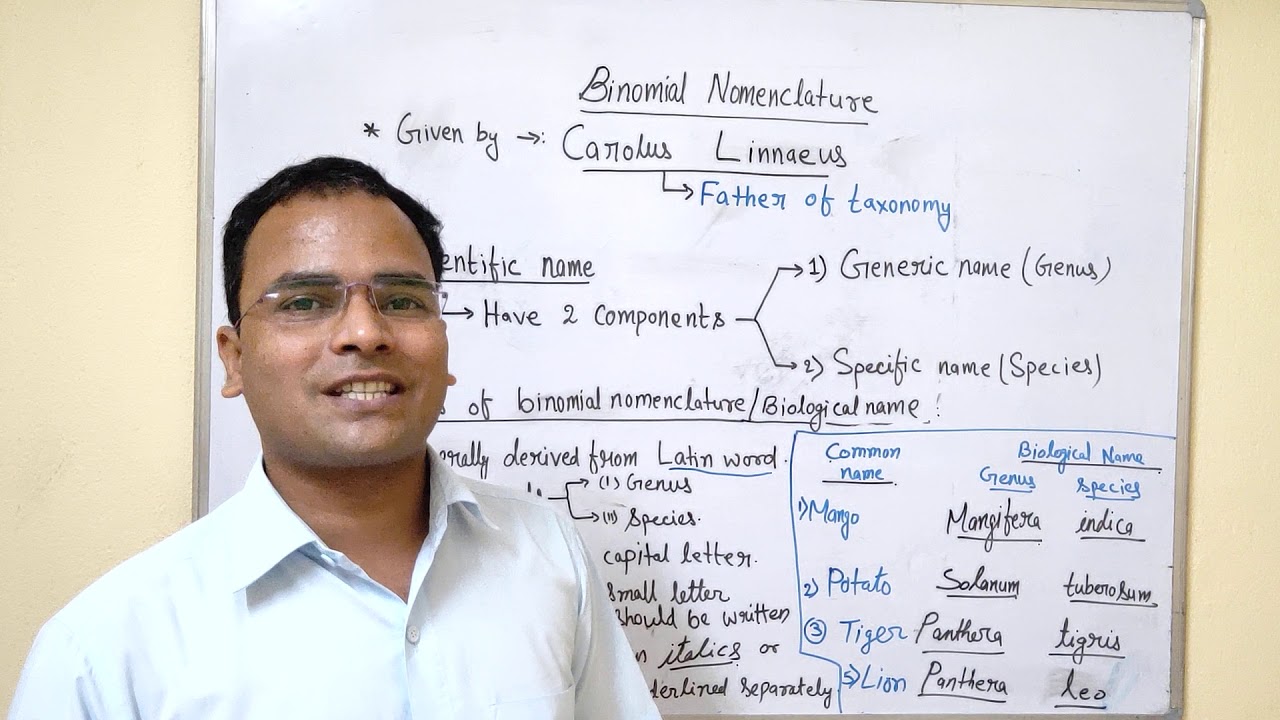 Binomial Nomenclature
* Given by →: Carolus Linnaeus
↳ Father of taxonomy
entific name
→ Have 2 components
→ 1) Generic name (Genus)
→ 2) Specific name (Species)
of binomial nomenclature/Biological name :
erally derived from Latin word.
→ (I) Genus
→ (II) Species.
capital letter.
small letter
should be written
n italics or
derlined separately
Common name
Biological Name
Genus species
1) Mango Mangifera indica
2) Potato Solanum tuberosum
③ Tiger Panthera tigris
Lion Panthera leo